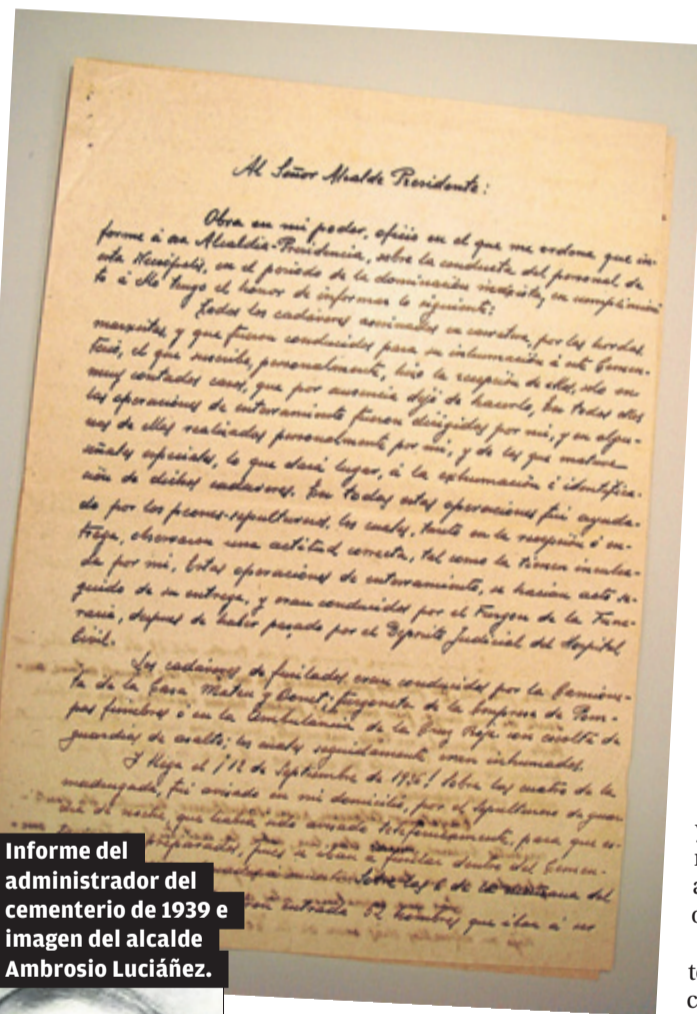 Al Señor Alcalde Presidente:
Obra en mi poder, oficio en el que me ordena que in-
forme á esa Alcaldía-Presidencia, sobre la conducta del personal de
esta Necrópolis, en el periodo de la dominación marxista, en cumplimien
to á ello tengo el honor de informar lo siguiente:
Todos los cadáveres asesinados en carretera, por las hordas
marxistas, y que fueron conducidos para su inhumación á este Cemen-
terio, el que suscribe, personalmente, hizo la recepción de ellos, solo en
muy contados casos, que por ausencia dejó de hacerlo, En todos ellos
las operaciones de enterramiento fueron dirigidas por mi, y en algu-
nas de ellas realizadas personalmente por mi, y de las que
señales especiales, lo que dará lugar, á la exhumación é identifica-
ción de dichos cadáveres. En todas estas operaciones fui ayuda-
do por los peones-sepultureros, los cuales, tanto en la recepción ó en-
trega, observaron una actitud correcta, tal como la tienen inculca-
da por mi, Estas operaciones de enterramiento, se hacían acto se-
guido de su entrega, y eran conducidos por el Furgon de la Fune-
raria, despues de haber pasado por el Deposito Judicial del Hospital
Civil.
Los cadáveres de fusilados eran conducidos por la Camione-
ta de la Casa Mateu y furgoneta de la Empresa de Pom-
pas funebres ó en la Ambulancia de la Cruz Roja con escolta de
guardias de asalto; los cuales seguidamente eran inhumados.
Y llega el ¡12 de Septiembre de 1936! Sobre las cuatro de la
madrugada, fui avisado en mi domicilio, por el Sepulturero de guar
dia de noche, que habia sido avisado telefonicamente, para que es-
preparados, pues se iban a fusilar dentro del Cemen-
Sobre las 6 de la mañana del
entrada 52 hombres que iban á ser
Informe del
administrador del
cementerio de 1939 e
imagen del alcalde
Ambrosio Luciáñez.